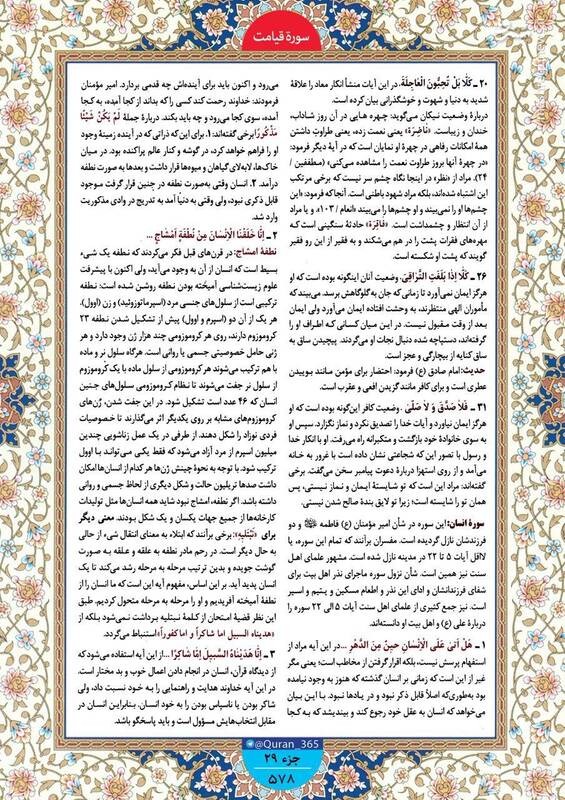 سورة قیامت
۲۰ ـ كَلَّا بَلْ تُحِبُّونَ الْعَاجِلَةَ. در این آیات منشأ انکار معاد را علاقة
شدید به دنیا و شهوت و خوشگذرانی بیان کرده است.
دربارة وضعیت نیکان می‌گوید: چهره هایی در آن روز شاداب،
خندان و زیباست. «نَاضِرَة» یعنی نعمت زده، یعنی طراوتِ داشتن
همة امکانات رفاهی در چهرة او نمایان است که در آیة دیگر فرمود:
«در چهرة آنها بروز طراوت نعمت را مشاهده می‌کنی» (مطففین /
۲۴). مراد از «نظر» در اینجا نگاه چشم سر نیست که برخی مرتکب
این اشتباه شده‌اند، بلکه مراد شهود باطنی است. آنجا که فرمود: «این
چشم‌ها او را نمی‌بیند و او چشم‌ها را می‌بیند (انعام / ۱۰۳)». و یا مراد
از آن انتظار و چشمداشت است. «فاقِرَة» حادثة سنگینی است کـه
مهره‌های فقرات پشت را در هم می‌شکند و به فقیر از این رو فقیر
گویند که پشت او شکسته است.
۲۶ ـ كَلَّا اِذَا بَلَغَتِ التَّرَاقِيَ. وضعیت آنان اینگونه بوده است که او
هرگز ایمان نمی‌آورد تا زمانی که جان به گلوگاهش برسد. می‌بیند که
مأموران الهی منتظرند، به وحشت افتاده ایمان می‌آورد ولی ایمان
بعد از وقت مقبول نیست. در این میان کسانی کـه اطراف او را
گرفته‌اند، دستپاچه شده دنبال نجات او می‌گردند. پیچیدن ساق به
ساق کنایه از بیچارگی و عجز است.
حدیث: امام صادق (ع) فرمود: احتضار برای مؤمن مانند بوییدن
عطری است و برای کافر مانند گزیدن افعی و عقرب است.
۳۱ ـ فَلَا صَدَّقَ وَ لَا صَلَّى. وضعیت کافر این‌گونه بوده است که او
هرگز ایمان نیاورد و آیات خدا را تصدیق نکرد و نماز نگزارد. سپس او
به سوی خانوادة خود بازگشت و متکبرانه راه می‌رفت. او با انکار خدا
و رسول با تصور این که شجاعتی نشان داده است با غرور به خانه
می‌آمد و از روی استهزا دربارة دعوت پیامبر سخن می‌گفت. برخی
گفته‌اند: مراد این است که تو شایستة ایمان و نماز نیستی، پس
همان تو را شایسته است؛ زیرا تو لایق بندة صالح شدن نیستی.
سورة انسان: این سوره در شأن امیر مؤمنان (ع) فاطمه و دو
فرزندشان نازل گردیده است. مفسران برآنند که تمام این سوره، یا
لااقل آیات ۵ تا ۲۲ در مدینه نازل شده است. مشهور علمای اهل
سنت نیز همین است. شأن نزول سوره ماجرای نذر اهل بیت برای
شفای فرزندانشان و ادای این نذر و اطعام مسکین و یتیم و اسیر
است. نیز جمع کثیری از علمای اهل سنت آیات ۵ الی ۲۲ سوره را
دربارة علی (ع) و اهل بیت او دانسته‌اند.
۱ ـ هَلْ اَتىٰ عَلَى الْاِنْسَانِ حِينٌ مِنَ الدَّهْرِ ... در این آیه مراد از
استفهام پرسش نیست، بلکه اقرار گرفتن از مخاطب است؛ یعنی مگر
غیر از این است که زمانی بر انسان گذشته که هنوز به وجود نیامده
بود به‌طوری‌که اصلاً قابل ذکر نبود و در یادها نبود. بـا ایـن بیـان
می‌خواهد که انسان به عقل خود رجوع کند و بیندیشد که به کجا
می‌رود و اکنون باید برای آینده‌اش چه قدمی بردارد. امیر مؤمنان
فرمودند: خداوند رحمت کند کسی را که بداند از کجا آمده، به کجـا
آمده، سوی کجا می‌رود و چه باید بکند. دربارة جملة لَمْ يَكُنْ شَيْئًا
مَذْكُورًا برخی گفته‌اند: ۱. برای این که ذراتی که در آینده زمینة وجود
او را فراهم خواهد کرد، در گوشه و کنار عالم پراکنده بود. در میان
خاک‌ها، لابه‌لای گیاهان و میوه‌ها قرار داشت و بعدها به صورت نطفه
درآمد. ۲. انسان وقتی به‌صورت نطفه در جنین قرار گرفت موجود
قابل ذکری نبود، ولی وقتی به دنیا آمد به تدریج در وادی مذکوریت
وارد شد.
۲ ـ اِنَّا خَلَقْنَا الْاِنْسَانَ مِنْ نُطْفَةٍ اَمْشَاجٍ ...
نطفة امشاج: در قرن‌های قبل فکر می‌کردند که نطفه یک شیء
بسیط است که انسان از آن به وجود می‌آید، ولی اکنون با پیشرفت
علوم زیست‌شناسی آمیخته بودن نطفه روشن شده است: نطفه
ترکیبی است از سلول‌های جنسی مرد (اسپرماتوزوئید) و زن (اوول).
هر یک از آن دو (اسپرم و اوول) پیش از تشکیل شـدن نطفه ۲۳
کروموزوم دارند، روی هر کروموزومی چند هزار ژن وجود دارد و هر
ژنی حامل خصوصیتی جسمی یا روانی است. هرگاه سلول نر و ماده
با هم ترکیب می‌شوند هر کروموزومی از سلول ماده با یک کروموزوم
از سلول نر جفت می‌شوند تا نظام کروموزومی سلول‌های جنین
انسان که ۴۶ عدد است تشکیل شود. در این جفت شدن، ژن‌های
کروموزوم‌های مشابه بر روی یکدیگر اثر می‌گذارند تا خصوصیات
فردی نوزاد را شکل دهند. از طرفی در یک عمل زناشویی چندین
میلیون اسپرم از مرد آزاد می‌شود که فقط یکی می‌تواند با اوول
ترکیب شود. با توجه به نحوة چینش ژن‌ها هر کدام از انسان‌ها امکان
داشت صدها تریلیون حالت و شکل دیگری از لحاظ جسمی و روانی
داشته باشد. اگر نطفه، امشاج نبود شاید همه انسان‌ها مثل تولیدات
کارخانه‌ها از جمیع جهات یکسان و یک شکل بودند. معنی دیگر
برای «نَبْتَلیهِ»: برخی برآنند که ابتلاء به معنای انتقال شیء از حالی
به حال دیگر است. در رحم مادر نطفه به علقه و علقه به صورت
گوشت جویده و بدین ترتیب مرحله به مرحله رشد می‌کند تا یک
انسان پدید آید. بر این اساس، مفهوم آیه این است که ما انسان را از
نطفة آمیخته آفریدیم و او را مرحله به مرحله متحول کردیم. طبق
این نظر قضیة امتحان از کلمة نبتلیه برداشت نمی‌شود بلکه از
«هدیناه السبیل اما شاکراً و اما کفوراً» استنباط می‌گردد.
۳ ـ اِنَّا هَدَيْنَاهُ السَّبِيلَ اِمَّا شَاكِرًا ... از این آیه استفاده می‌شود که
از دیدگاه قرآن، انسان در انجام دادن اعمال خوب و بد مختار است.
در این آیه خداوند هدایت و راهنمایی را به خود نسبت داد، ولی
شاکر بودن یا ناسپاس بودن را به خود انسان. بنابراین انسان در
مقابل انتخاب‌هایش مسؤول است و باید پاسخگو باشد.
@Quran_365
جزء ۲۹
۵۷۸